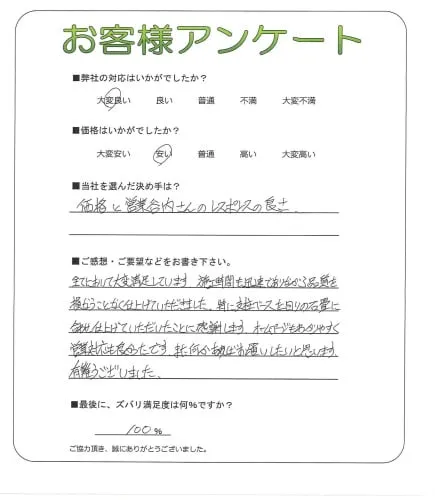 お客様アンケート
■弊社の対応はいかがでしたか？
大変良い 良い 普通 不満 大変不満
■価格はいかがでしたか？
大変安い 安い 普通 高い 大変高い
■当社を選んだ決め手は？
価格と営業合内さんのレスポンスの良さ。
■ご感想・ご要望などをお書き下さい。
全てにおいて大変満足しています。施工時間も迅速でありながら品質を
損なうことなく仕上げていただきました。特に支柱ベースを回りの石畳に
合わせ仕上げていただいたことに感謝します。ホームページもわかりやすく
営業対応も良かったです。また何かあればお願いしたいと思います。
有難うございました。
■最後に、ズバリ満足度は何％ですか？
100 %
ご協力頂き、誠にありがとうございました。